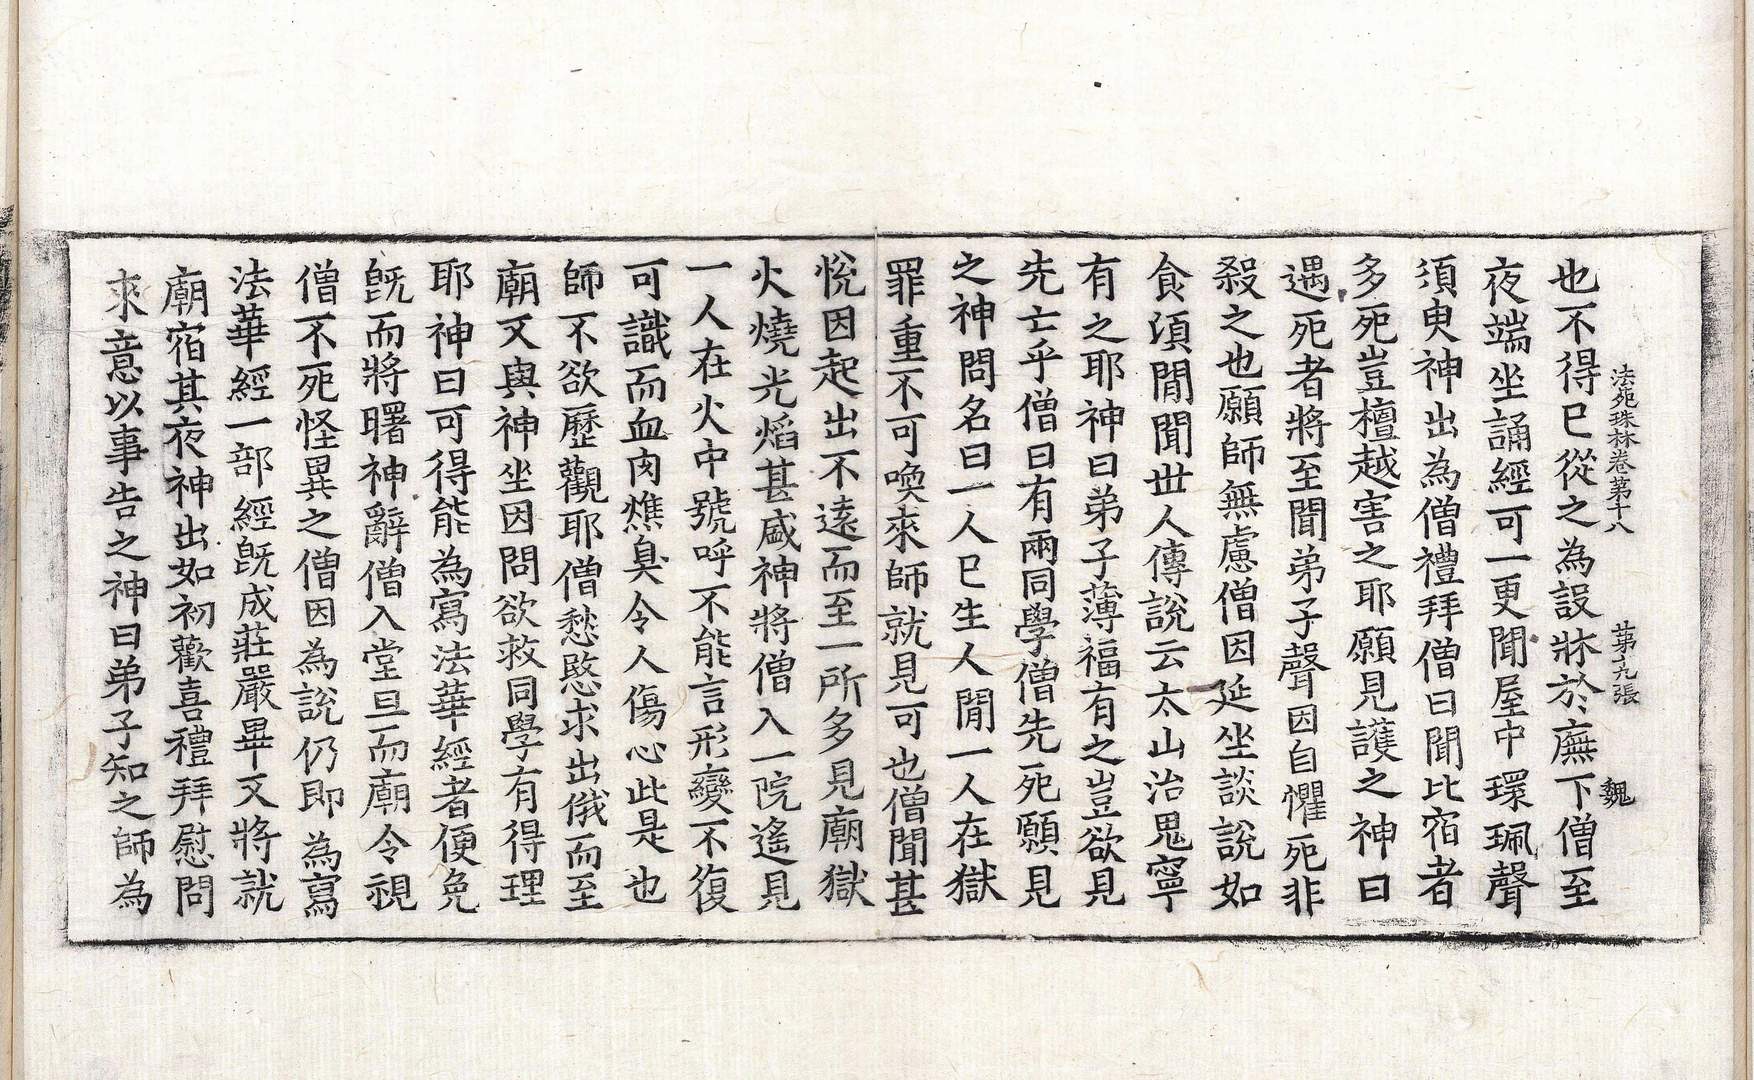 法苑珠林卷第十八　第九張　魏
也不得已從之為設牀於廡下僧至
夜端坐誦經可一更聞屋中環珮聲
須臾神出為僧禮拜僧曰聞比宿者
多死豈檀越害之耶願見護之神曰
遇死者將至聞弟子聲因自懼死非
殺之也願師無慮僧因延坐談說如
食須閒聞世人傳說云太山治鬼寧
有之耶神曰弟子薄福有之豈欲見
先亡乎僧曰有兩同學僧先死願見
之神問名曰一人已生人閒一人在獄
罪重不可喚來師就見可也僧聞甚
悅因起出不遠而至一所多見廟獄
火燒光焰甚盛神將僧入一院遙見
一人在火中號呼不能言形變不復
可識而血肉燋臭令人傷心此是也
師不欲歷觀耶僧愁愍求出俄而至
廟又與神坐因問欲救同學有得理
耶神曰可得能為寫法華經者便免
旣而將曙神辭僧入堂旦而廟令視
僧不死怪異之僧因為說仍即為寫
法華經一部經旣成莊嚴畢又將就
廟宿其夜神出如初歡喜禮拜慰問
來意以事告之神曰弟子知之師為